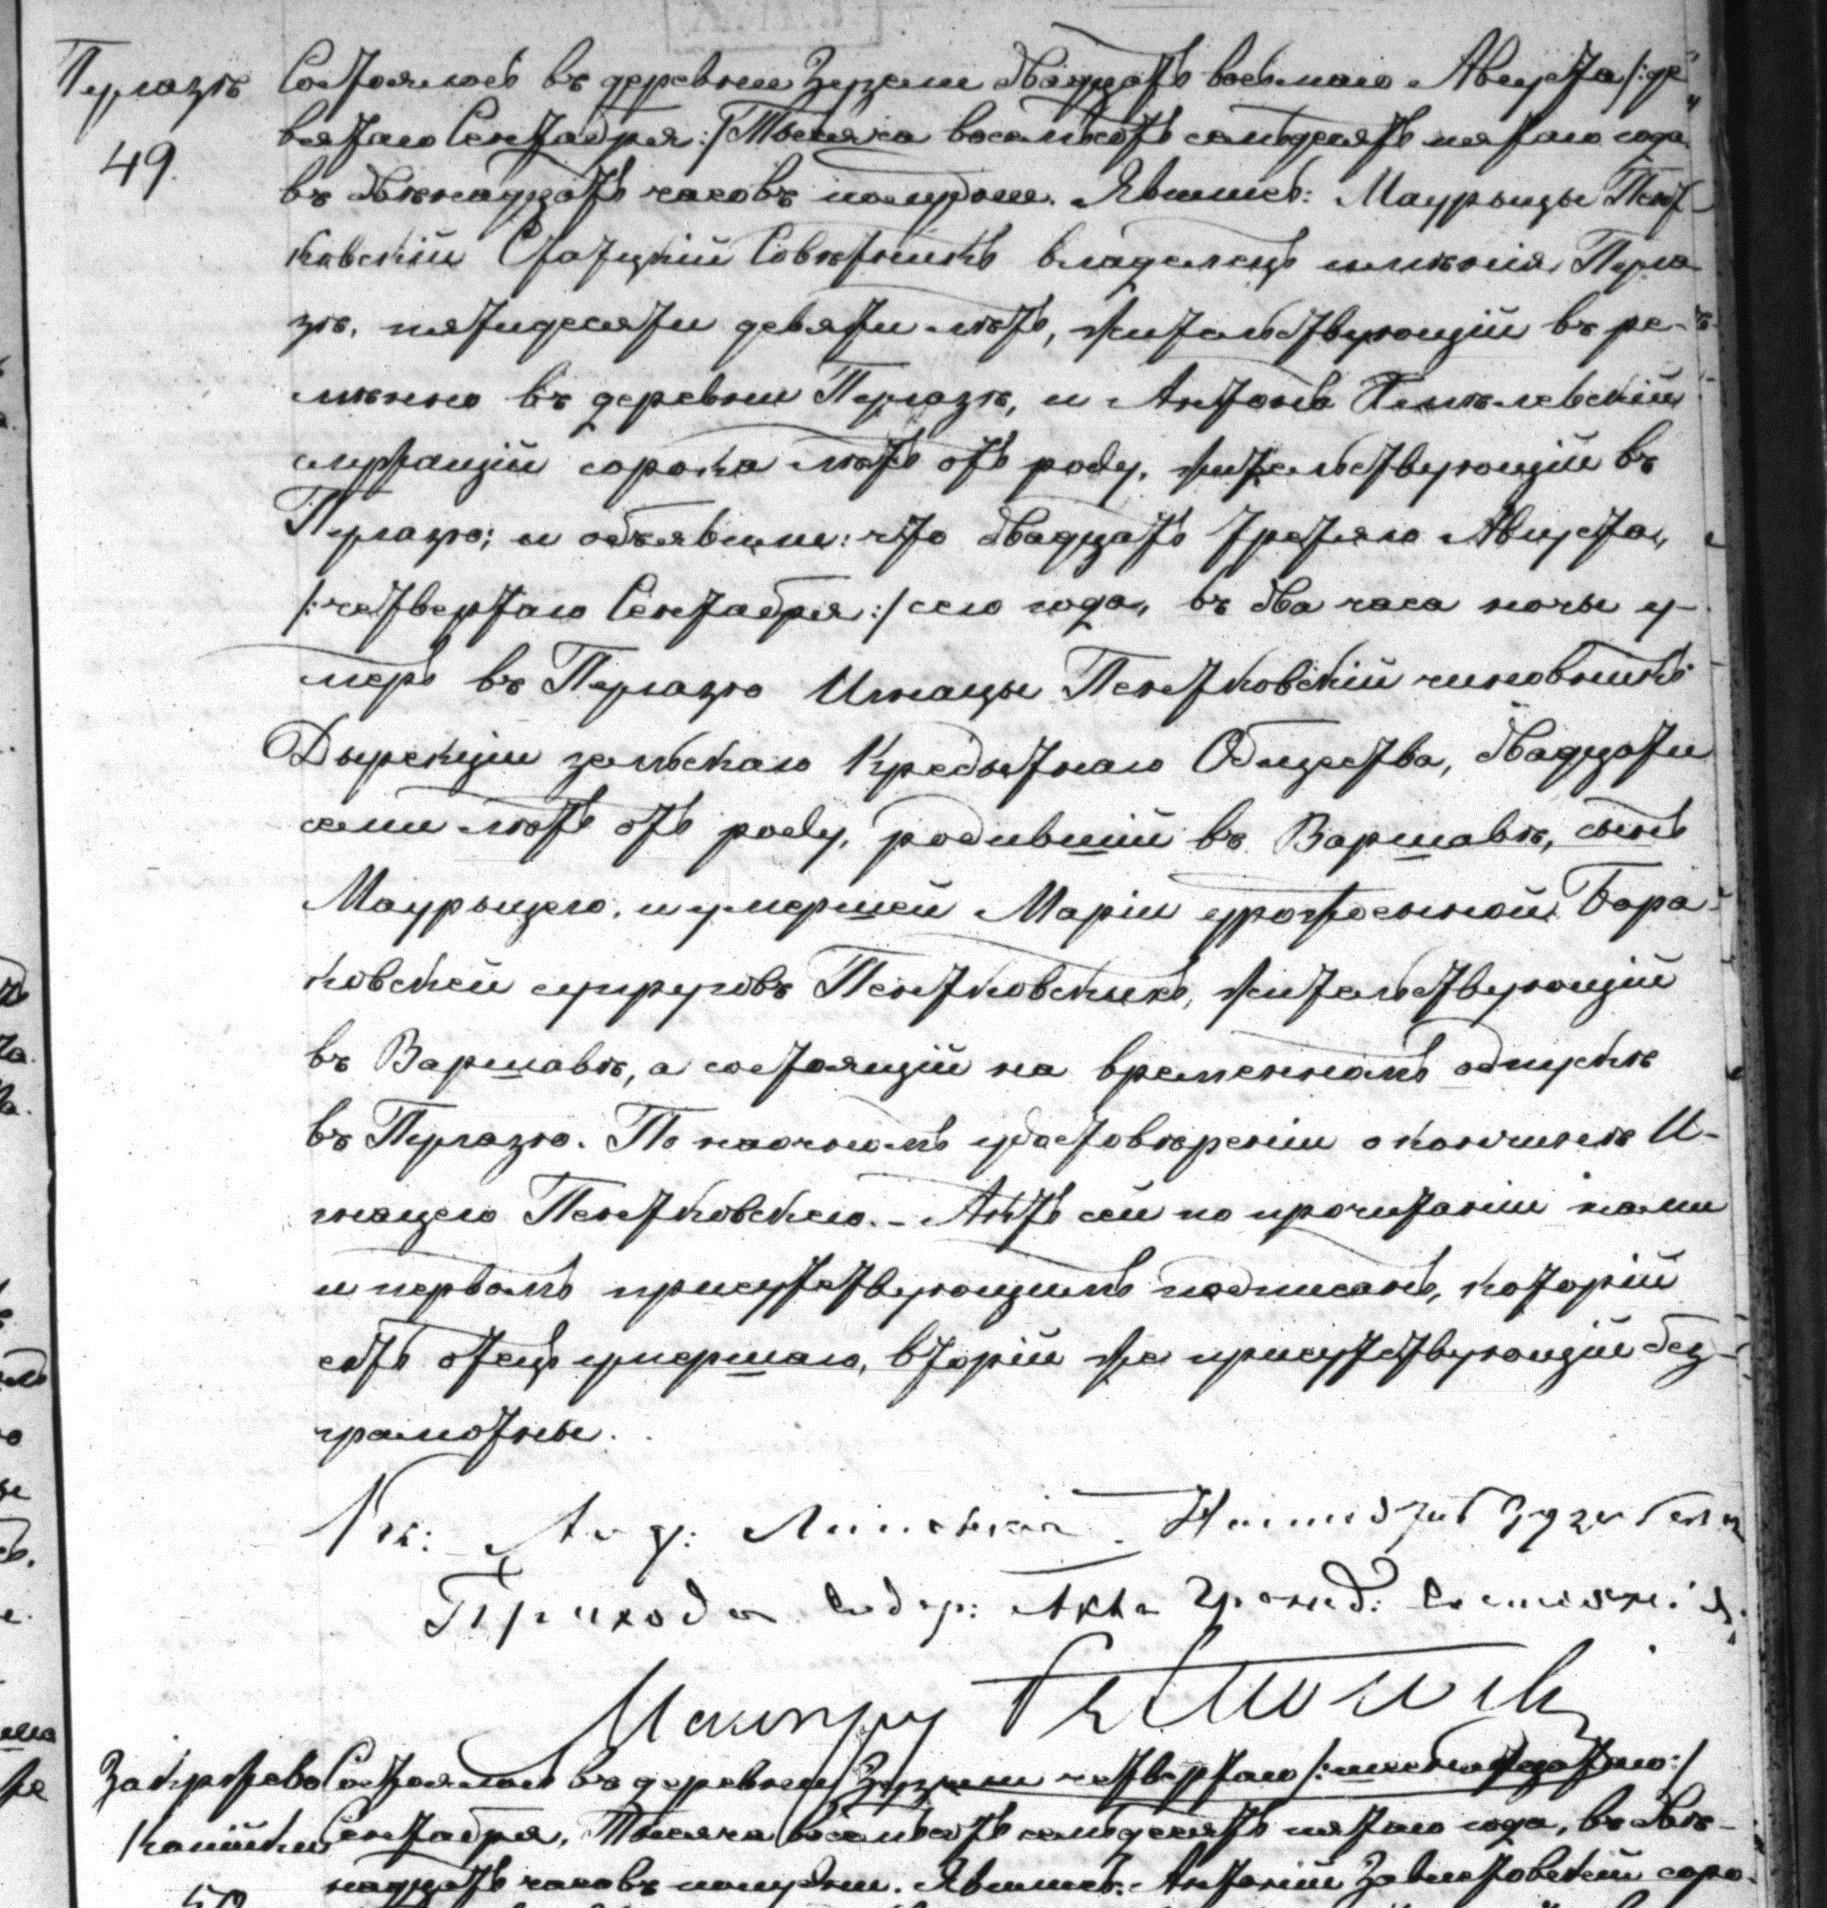 Пулазъ
49.
Состоялось въ деревни Зузели двадцать восьмаго Августа /:де„
вятаго Сентабря:/ Тысяча восемьсотъ семьдесятъ пятаго года
въ двѣнадцать часовъ полудни. Явились: Маурыцы Пент
ковскій Статцкій Совѣтникъ владелецъ имѣнія Пула
зъ, пятидесяти девяти лѣтъ, жительствующій въ ре-
мѣнно въ деревни Пулазѣ, и Антонъ
служащій сорока лѣтъ отъ роду, жительствующій въ
Пулазю; и объявили: что двадцать третяго Августа,
/:четвертаго Сентабря:/ сего года, въ два часа ночы у-
меръ въ Пулазю Игнацы Пентковскій чиновникъ
Дырекціи земскаго Кредытнаго Общества, двадцати
семи лѣтъ отъ роду, родившій въ Варшавѣ, сынъ
Маурыцего, и умершей Маріи урожденной Бара-
ковской супруговъ Пентковскихъ, жительствующій
въ Варшавѣ, а состоящій на временномъ одпускѣ
въ Пулазю. По наочномъ удостовѣреніи о кончинѣ И-
гнацего Пентковскего. - Актъ сей по прочитаніи нами
и первымъ присутствующимъ подписанъ, которій
есть отецъ умершаго, вторій же присутствующій без-
грамотны.
Кс: Анд: Липскій Настоятель
Прихода Содер: Акта Гражд: Состоянія
Маьору Пентковскій
Закржево Состоялось въ деревни Зузели четвертаго /:шестнадцатаго:/
Копійки Сентабря, Тысяча восемьсотъ семьдесятъ пятаго года, въ двѣ-
50 надцать часовъ полудни. Явились: Антоній соро-